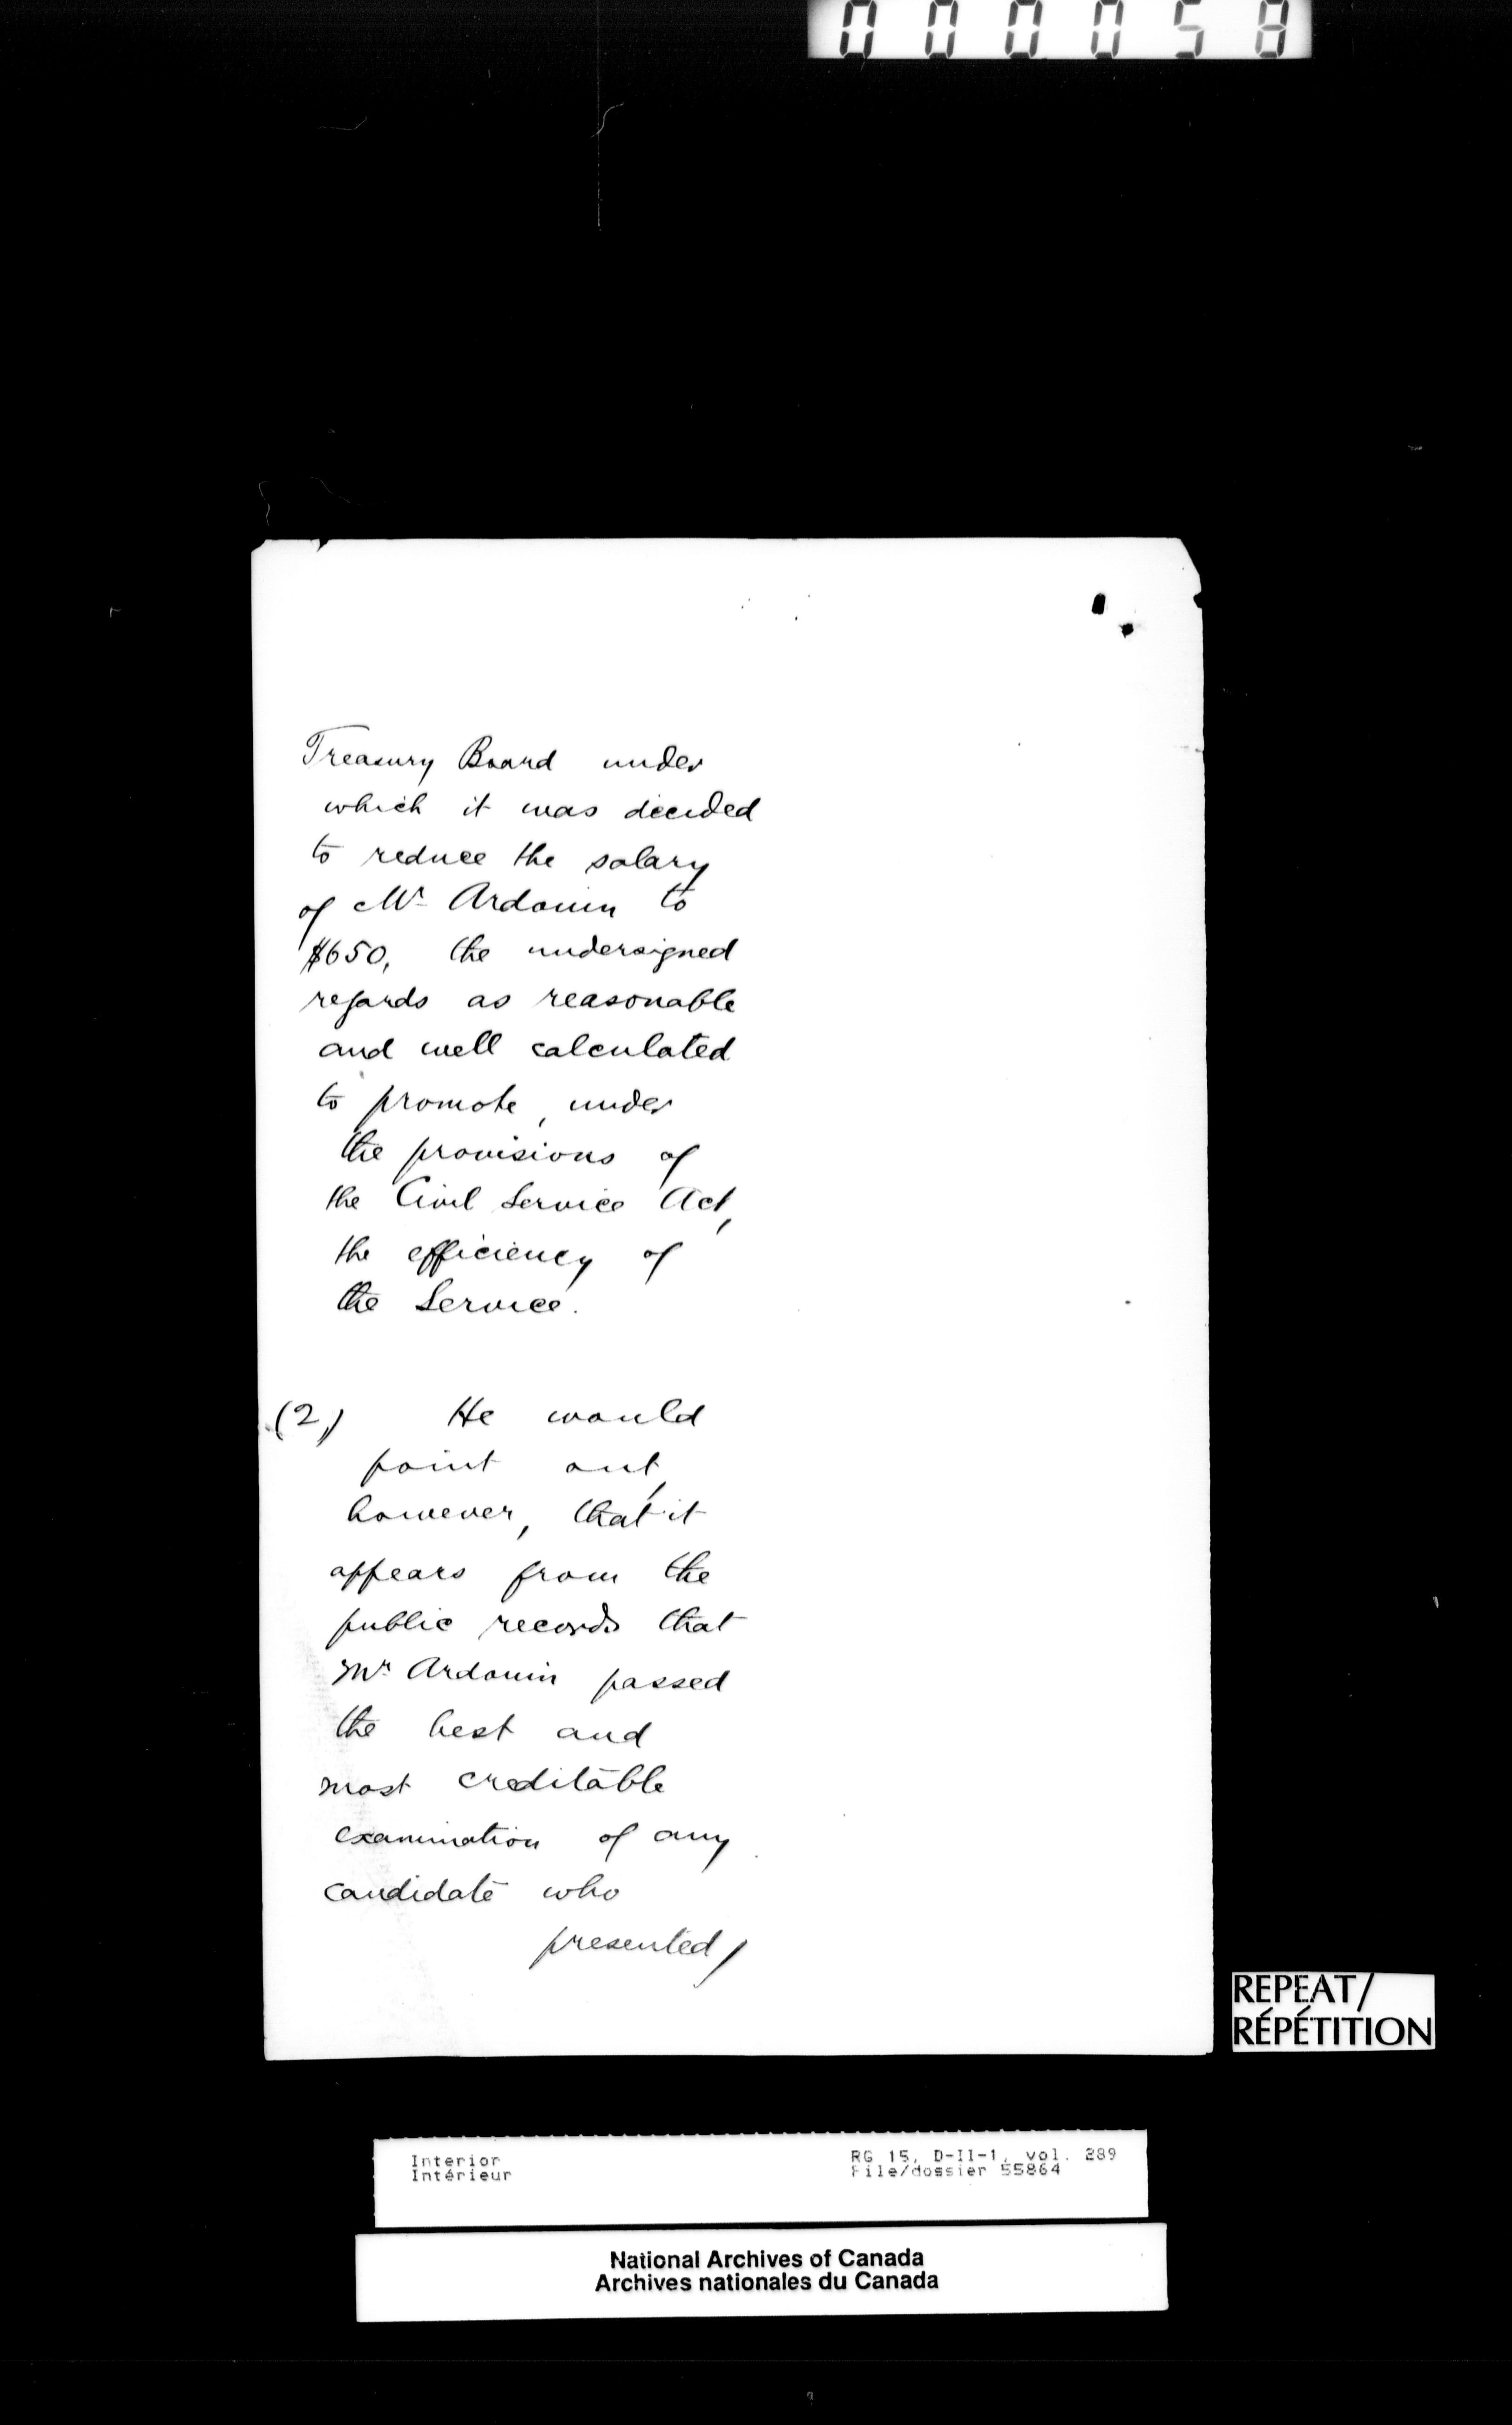 000058
Treasury Board under
which it was decided
to reduce the salary
of Mr Ardouin to
$650, the undersigned
regards as reasonable
and well calculated
to promote, under
the provisions of
the Civil Service Act,
the efficiency of
the Service.
(2) He would
point out,
however, that it
appears from the
public records that
Mr Ardouin passed
the best and
most creditable
examination of any
candidate who
presented/
REPEAT/
RÉPÉTITION
Interior
Intérieur
RG 15, D-II-1, vol. 289
File/dossier 55864
National Archives of Canada
Archives nationales du Canada